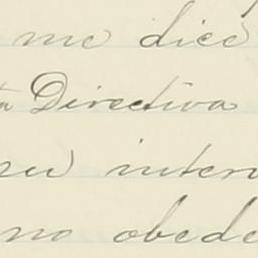 me dice
Directiva
su inter
no obede